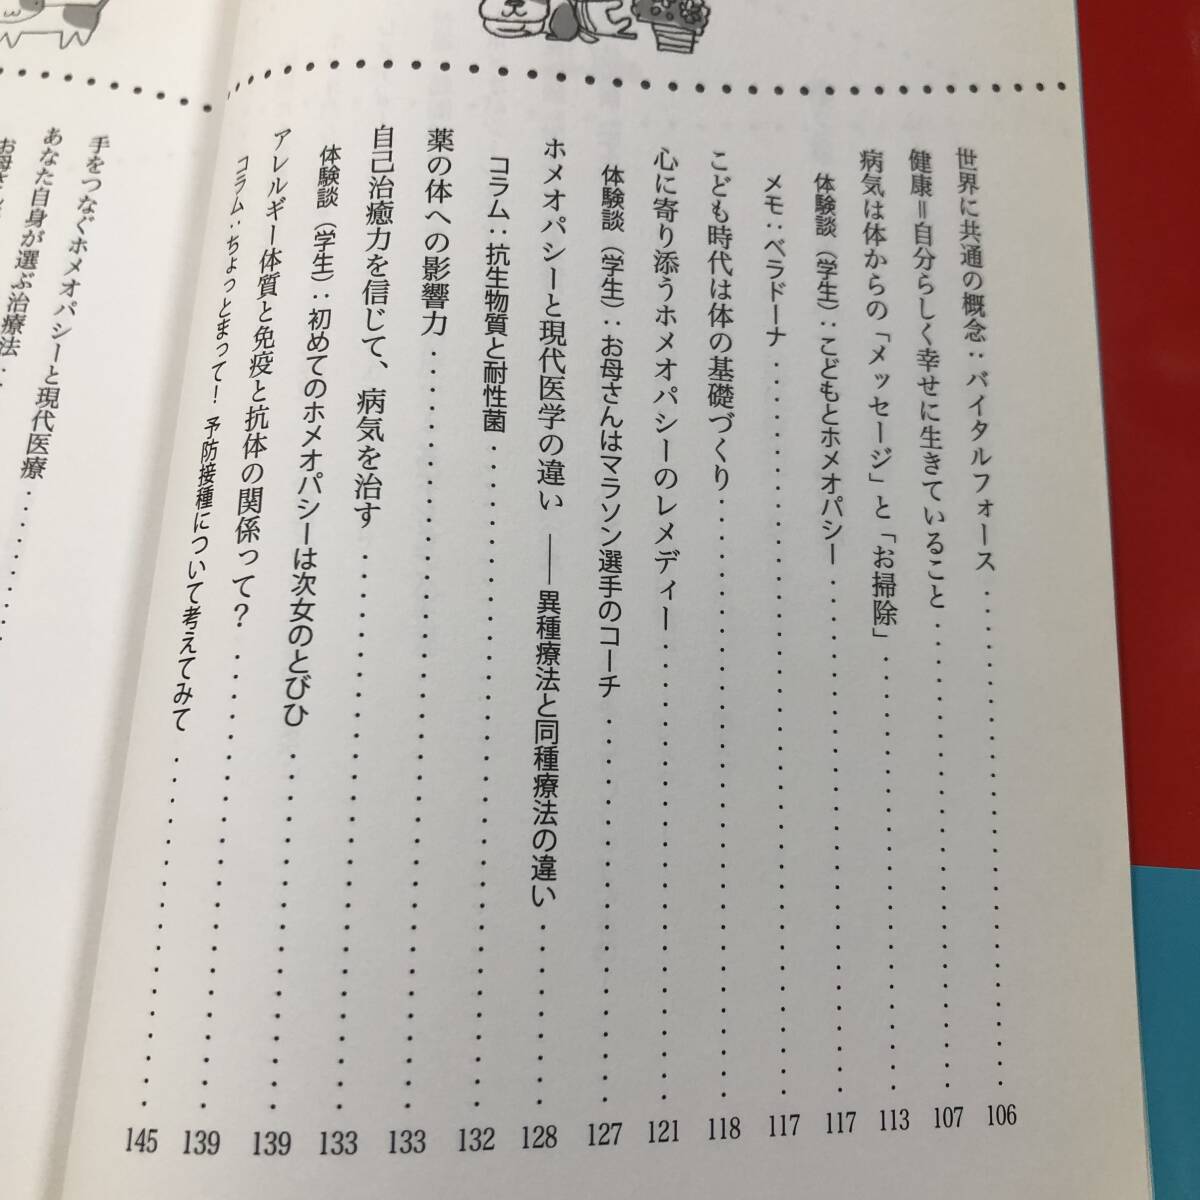 世界に共通の概念：バイタルフォース 106
健康＝自分らしく幸せに生きていること 107
病気は体からの「メッセージ」と「お掃除」 113
体験談（学生）：こどもとホメオパシー 117
メモ：ベラドーナ 117
こども時代は体の基礎づくり 118
心に寄り添うホメオパシーのレメディー 121
体験談（学生）：お母さんはマラソン選手のコーチ 127
ホメオパシーと現代医学の違い ――異種療法と同種療法の違い 128
コラム：抗生物質と耐性菌 132
薬の体への影響力 133
自己治癒力を信じて、病気を治す 133
体験談（学生）：初めてのホメオパシーは次女のとびひ 139
アレルギー体質と免疫と抗体の関係って？ 139
コラム：ちょっとまって！ 予防接種について考えてみて 145
手をつなぐホメオパシーと現代医療
あなた自身が選ぶ治療法
お母さん